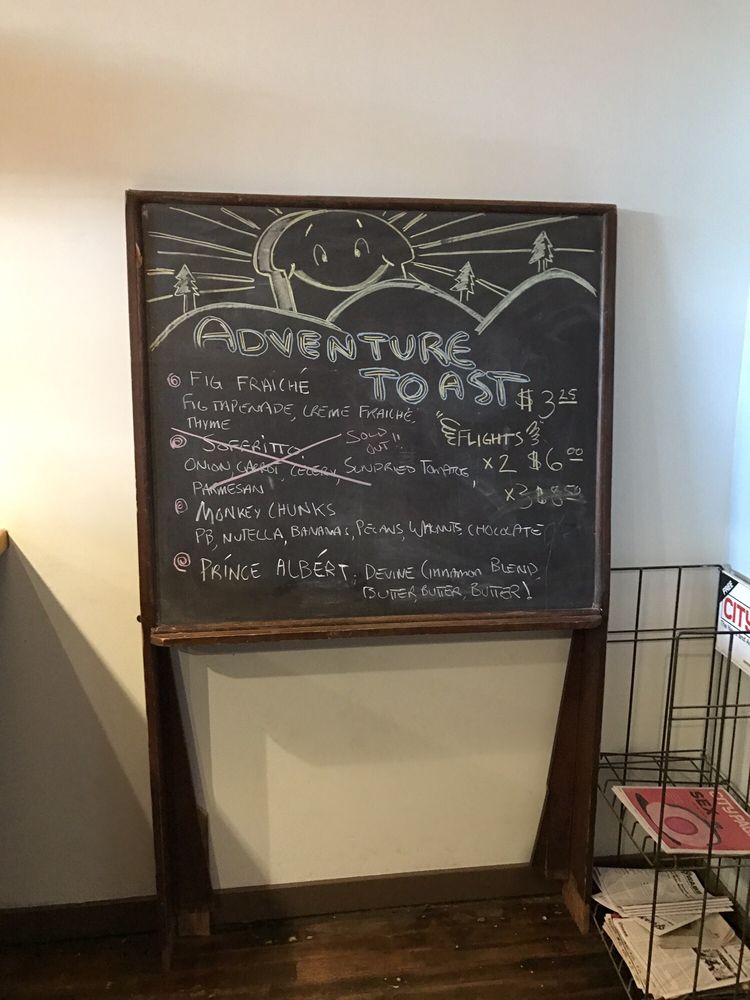 ADVENTURE
TOAST
$3.25
FIG FRAICHÉ
FIG TAPENADE, CRÈME FRAICHÉ,
THYME
FLIGHTS
x2 $6.00
x3 $8.50
SOFFRITTO
SOLD
OUT!!
ONION, CARROT, CELERY, SUNDRIED TOMATO,
PARMESAN
MONKEY CHUNKS
PB, NUTELLA, BANANAS, PECANS, WALNUTS, CHOCOLATE
PRINCE ALBÉRT: DEVINE CINNAMON BLEND,
BUTTER, BUTTER, BUTTER!
FREE
CITY
CITYPA
SEX